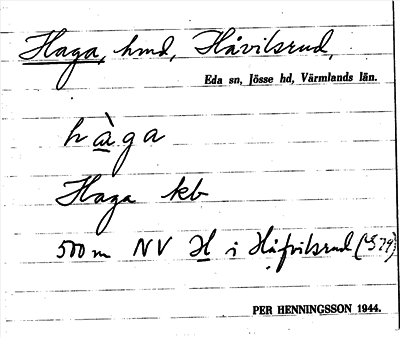 Haga, hmd, Håvilsrud,
Eda sn, Jösse hd, Värmlands län.
hàga
Haga kb
500 m NV H i Häfvilsrud (S 79)
PER HENNINGSSON 1944.